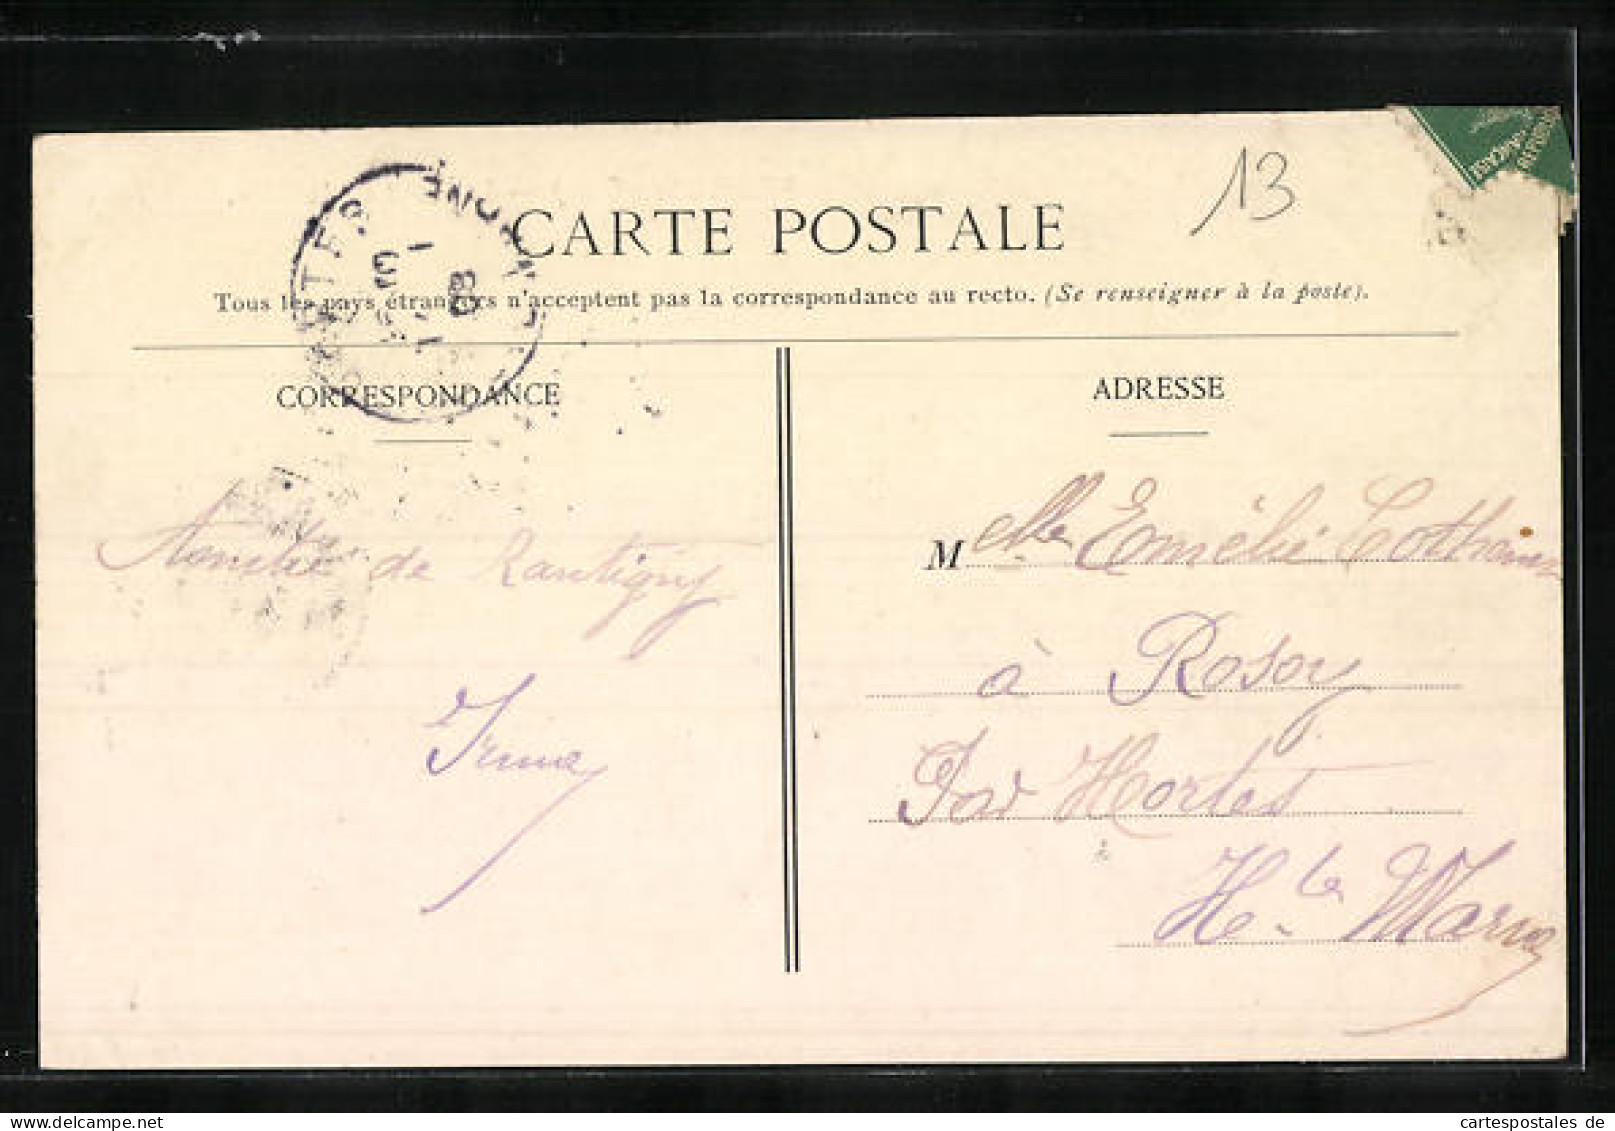 13
CARTE POSTALE
Tous les pays étrangers n'acceptent pas la correspondance au recto. (Se renseigner à la poste).
CORRESPONDANCE
Amitié de Rantigny
Irma
ADRESSE
M elle Emélie
à Rosoy
Par Hortes
H.te Marne
08
cartespostales de